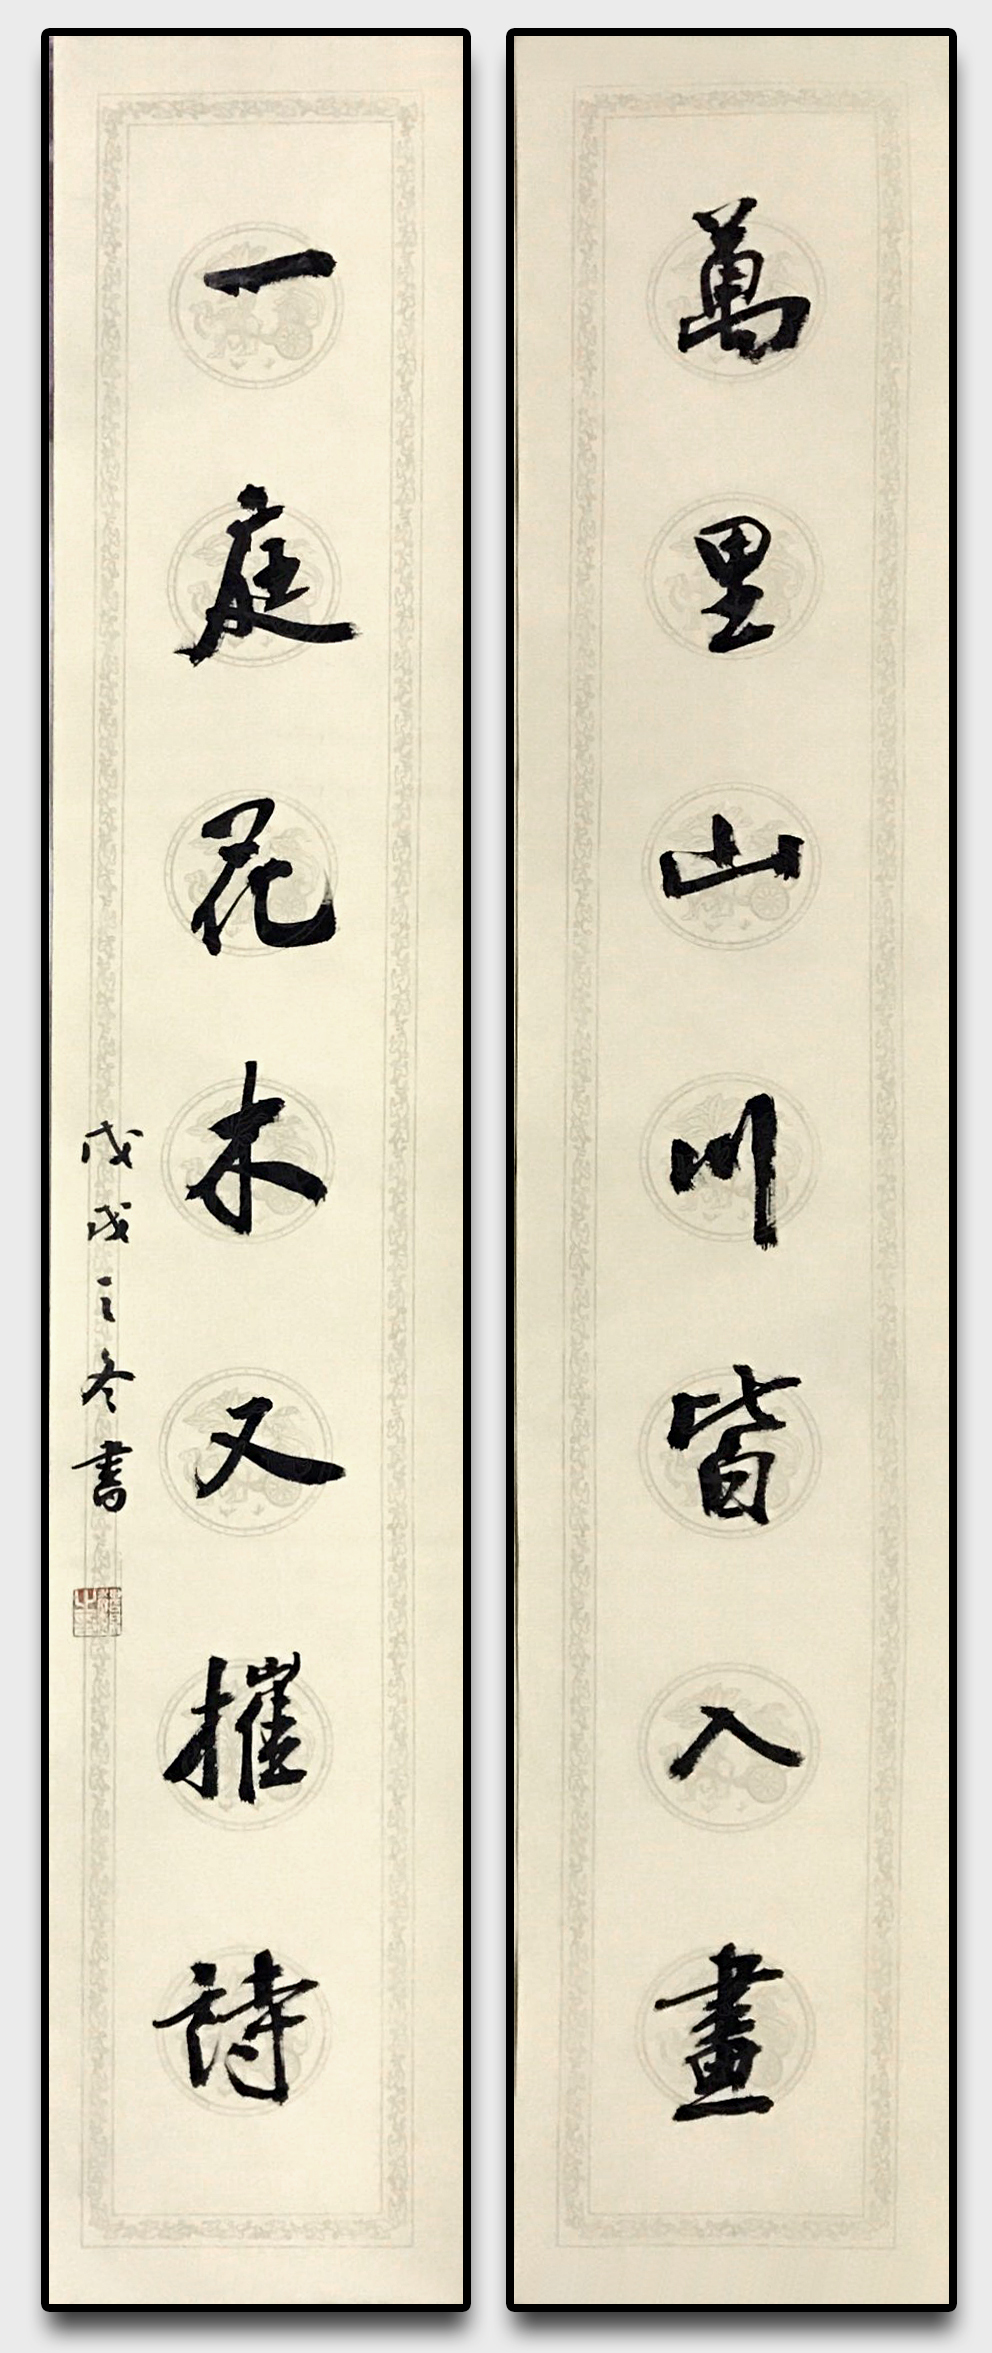 萬里山川皆入畫
一庭花木又摧詩
戊戌之冬書